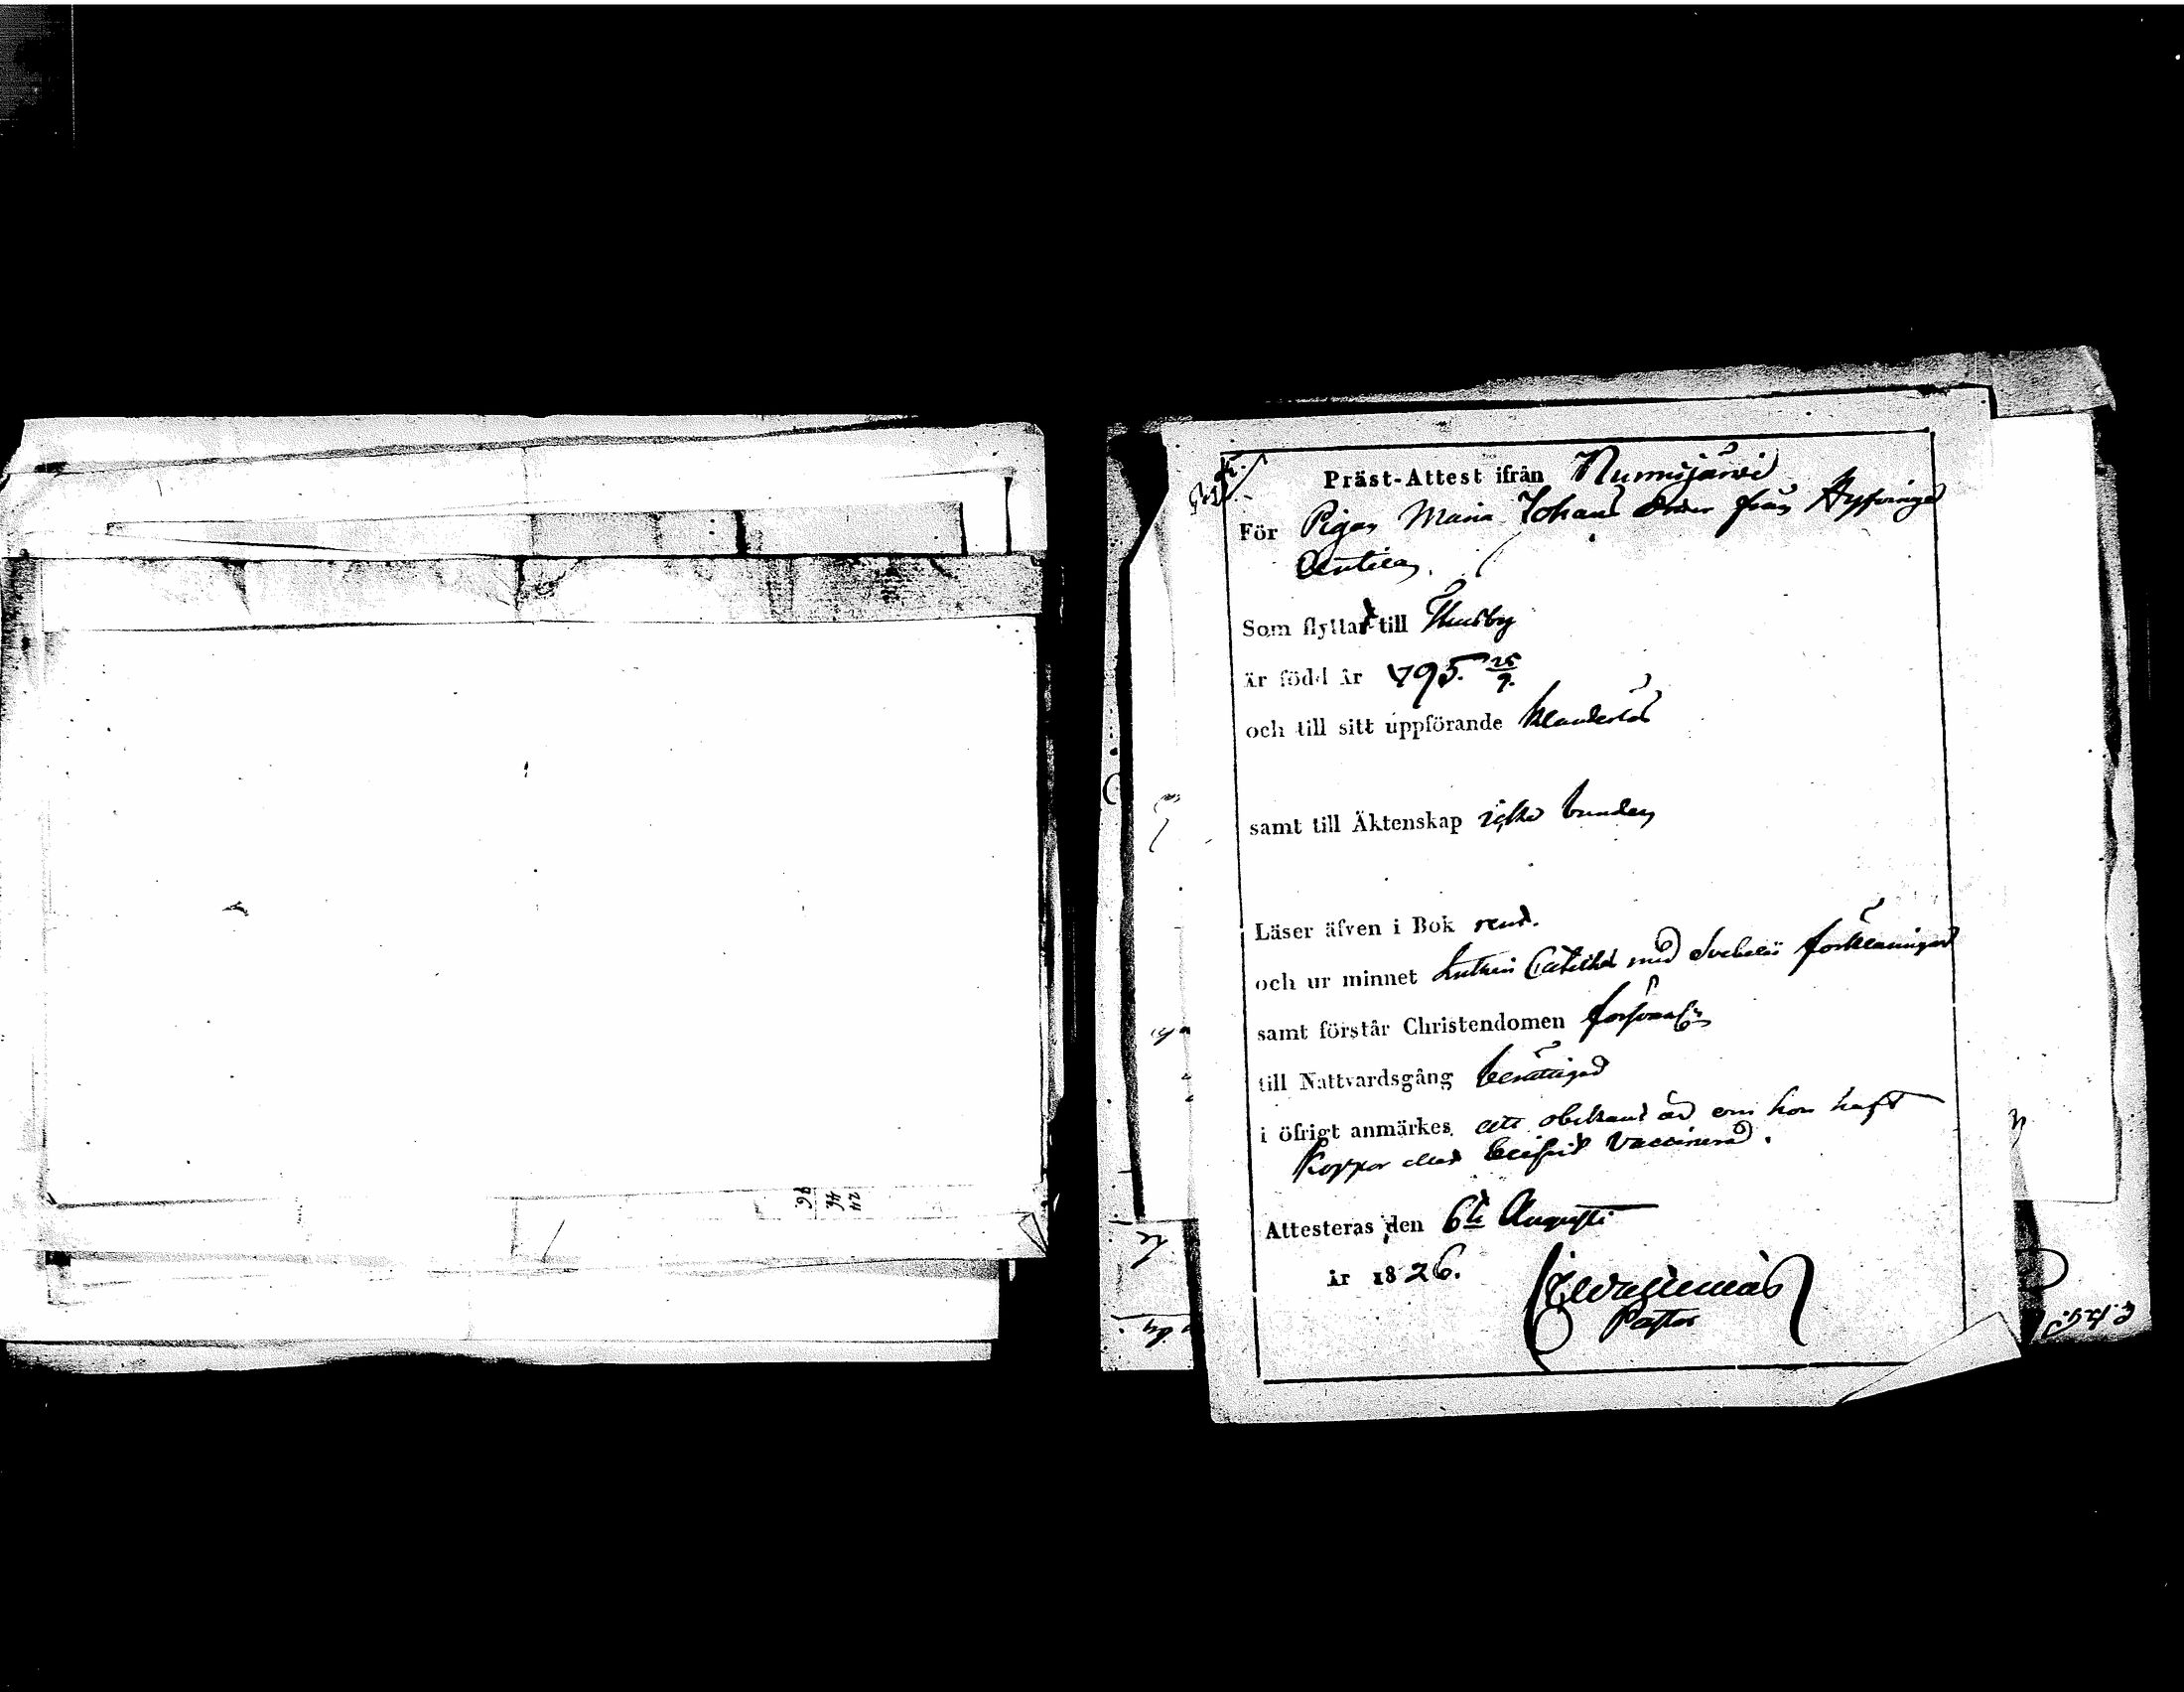 Präst-Attest ifrån Nurmijärvi
För Pigan Maria Johans dotter från Hyfvinge
Anttila
Som flyttar till Thusby
är född år 1795. 25/9.
och till sitt uppförande klanderlös
samt till Äktenskap icke bunden
Läser äfven i Bok rent.
och ur minnet Lutheri Cateches med Svebelii förklaringar
samt förstår Christendomen försvarl:n
till Nattvardsgång berättigad
i öfrigt anmärkes att obekant är om hon haft
Koppor eller blifvit Vaccinerad.
Attesteras den 6te Augusti
år 1826.
Pastor
24
44
96